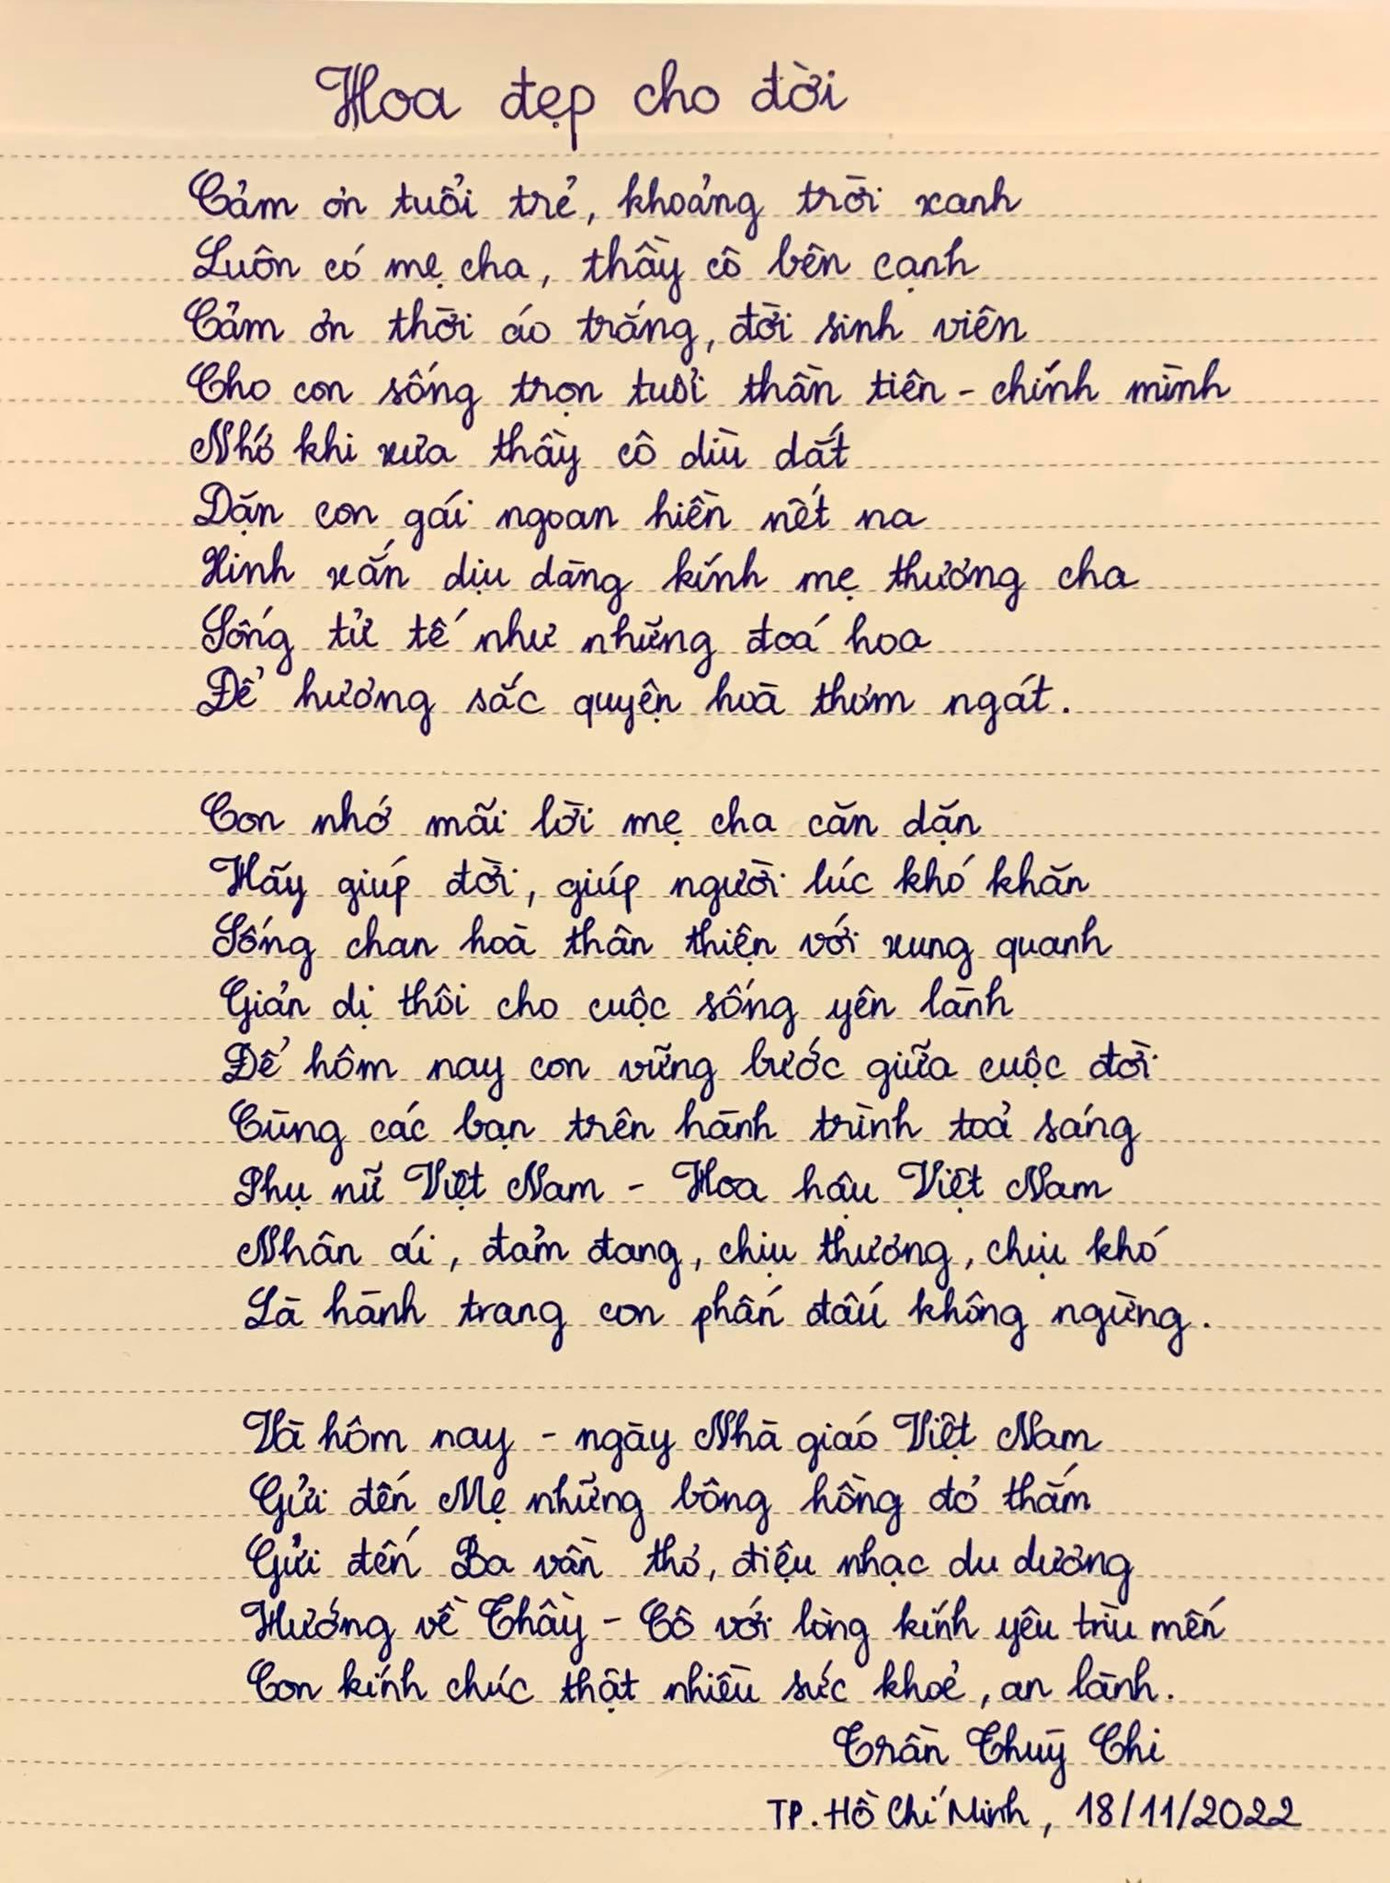 Hoa đẹp cho đời
Cảm ơn tuổi trẻ, khoảng trời xanh
Luôn có mẹ cha, thầy cô bên cạnh
Cảm ơn thời áo trắng, đời sinh viên
Cho con sống trọn tuổi thần tiên - chính mình
Nhớ khi xưa thầy cô dìu dắt
Dặn con gái ngoan hiền nết na
Xinh xắn dịu dàng kính mẹ thương cha
Sống tử tế như những đoá hoa
Để hương sắc quyện hoà thơm ngát.
Con nhớ mãi lời mẹ cha căn dặn
Hãy giúp đời, giúp người lúc khó khăn
Sống chan hoà thân thiện với xung quanh
Giản dị thôi cho cuộc sống yên lành
Để hôm nay con vững bước giữa cuộc đời
Cùng các bạn trên hành trình toả sáng
Phụ nữ Việt Nam - Hoa hậu Việt Nam
Nhân ái, đảm đang, chịu thương, chịu khó
Là hành trang con phấn đấu không ngừng.
Và hôm nay - ngày Nhà giáo Việt Nam
Gửi đến Mẹ những bông hồng đỏ thắm
Gửi đến Ba vần thơ, điệu nhạc du dương
Hướng về Thầy - Cô với lòng kính yêu trìu mến
Con kính chúc thật nhiều sức khoẻ, an lành.
Trần Thuỳ Chi
TP. Hồ Chí Minh, 18/11/2022